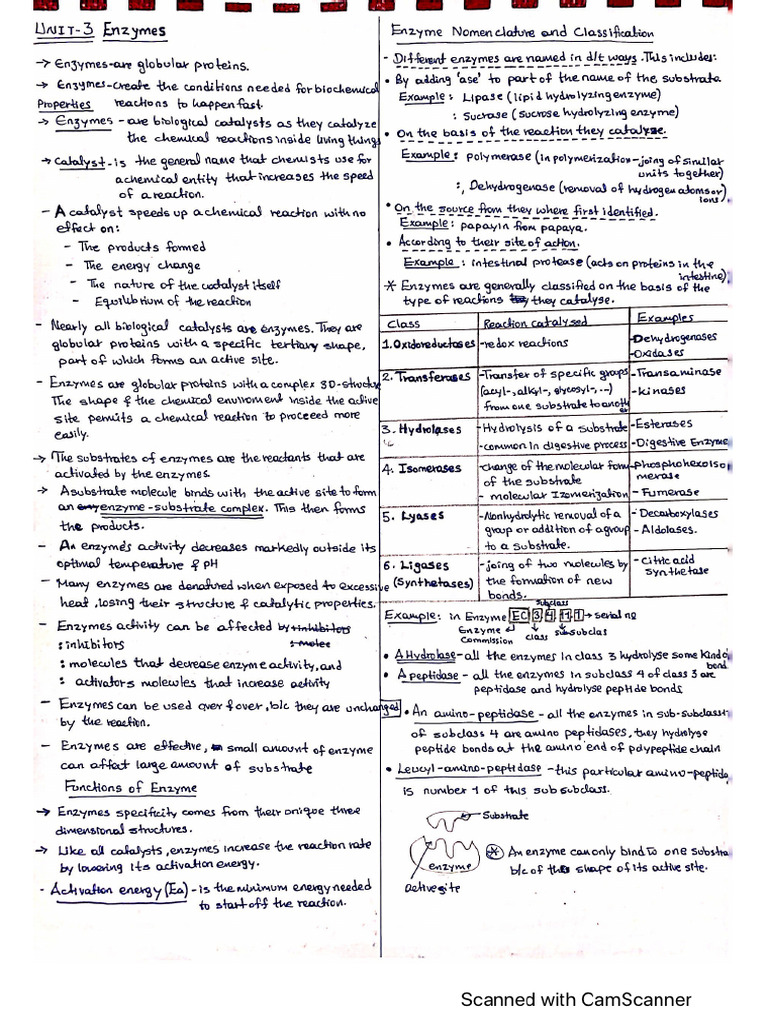 UNIT-3 Enzymes
→ Enzymes-are globular proteins.
→ Enzymes-create the conditions needed for biochemical
Properties reactions to happen fast.
→ Enzymes - are biological catalysts as they catalyze
the chemical reactions inside living things
→ Catalyst-is the general name that chemists use for
a chemical entity that increases the speed
of a reaction.
- A catalyst speeds up a chemical reaction with no
effect on:
- The products formed
- The energy change
- The nature of the catalyst itself
- Equilibrium of the reaction
- Nearly all biological catalysts are enzymes. They are
globular proteins with a specific tertiary shape,
part of which forms an active site.
- Enzymes are globular proteins with a complex 3D-structu
The shape & the chemical enviroment inside the active
site permits a chemical reaction to proceed more
easily.
→ The substrates of enzymes are the reactants that are
activated by the enzymes.
→ A substrate molecule binds with the active site to form
an enzyme-substrate complex. This then forms
the products.
- An enzyme's activity decreases markedly outside its
optimal temperature & pH
- Many enzymes are denatured when exposed to excessive
heat, losing their structure & catalytic properties.
- Enzymes activity can be affected by inhibitors
: inhibitors : molec
: molecules that decrease enzyme activity, and
: activators molecules that increase activity
- Enzymes can be used over & over, b/c they are unchanged
by the reaction.
- Enzymes are effective, small amount of enzyme
can affect large amount of substrate
Functions of Enzyme
→ Enzymes specificity comes from their unique three
dimensional structures.
→ Like all catalysts, enzymes increase the reaction rate
by lowering its activation energy.
- Activation energy (Ea) - is the minimum energy needed
to start off the reaction.
Enzyme Nomenclature and Classification
- Different enzymes are named in d/t ways. This includes:
• By adding 'ase' to part of the name of the substrate.
Example: Lipase (lipid hydrolyzing enzyme)
: Sucrase (sucrose hydrolyzing enzyme)
• On the basis of the reaction they catalyze.
Example: polymerase (in polymerization-joing of similar
units together)
:, Dehydrogenase (removal of hydrogen atoms or
ions).
• On the source from they where first identified.
Example: papayin from papaya.
• According to their site of action.
Example: intestinal protease (acts on proteins in the
intestine).
* Enzymes are generally classified on the basis of the
type of reactions they catalyse.
Class Reaction catalysed Examples
1. Oxidoreductases -redox reactions -Dehydrogenases
-Oxidases
2. Transferases -Transfer of specific groups -Transaminase
(acyl-, alkyl-, glycosyl-, ...) -kinases
from one substrate to anoth
3. Hydrolases -Hydrolysis of a substrate -Esterases
-common in digestive process -Digestive Enzyme
4. Isomerases -change of the molecular form -phosphohexoiso
of the substrate merase
- molecular Izomerization -Fumerase
5. Lyases -Nonhydrolytic removal of a -Decarboxylases
group or addition of a group -Aldolases.
to a substrate.
6. Ligases -joing of two molecules by -Citric acid
(Synthetases) the formation of new synthetase
bonds.
subclass
Example: in Enzyme EC 3.4.11.1 → serial no
Enzyme class sub subclas
Commission
• A Hydrolase-all the enzymes in class 3 hydrolyse some kinda
bond
• A peptidase - all the enzymes in subclass 4 of class 3 are
peptidase and hydrolyse peptide bonds
• An amino-peptidase - all the enzymes in sub-subclass 11
of subclass 4 are amino peptidases, they hydrolyse
peptide bonds at the amino end of polypeptide chain
• Leucyl-amino-peptidase - this particular amino-peptida
is number 1 of this sub subclass.
Substrate
enzyme
Active site
* An enzyme can only bind to one substra
b/c of the shape of its active site.
Scanned with CamScanner